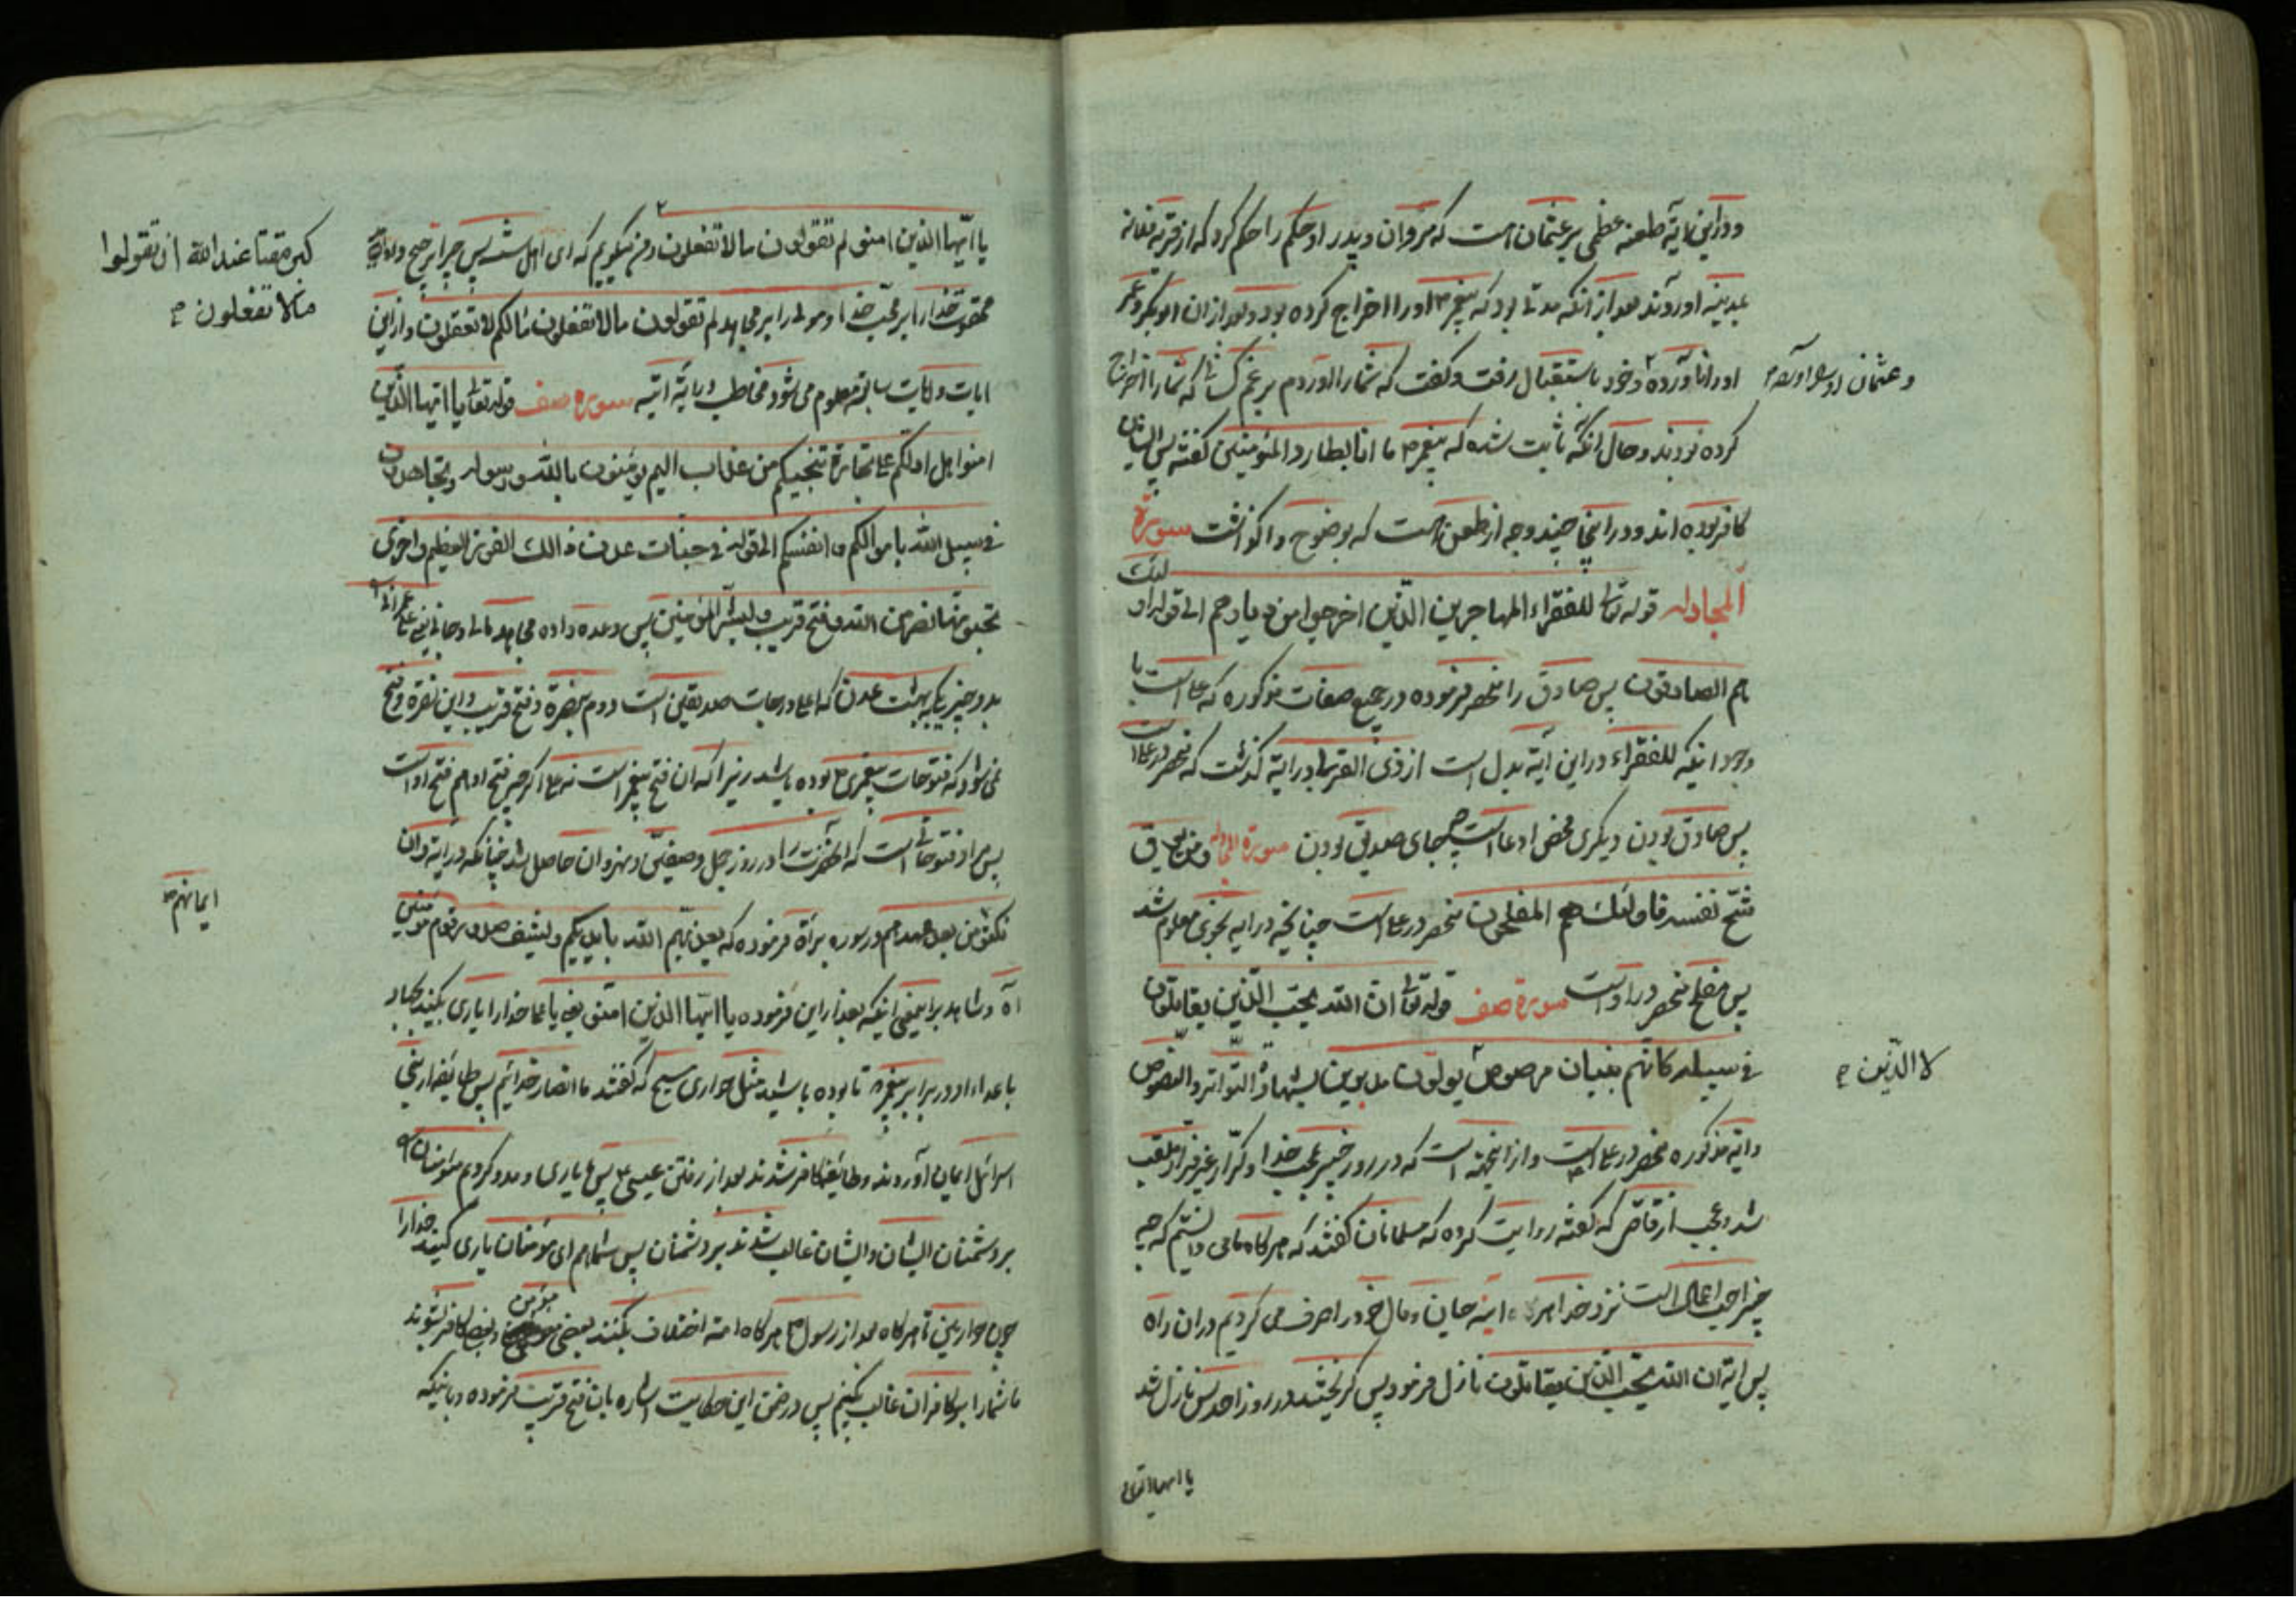 و در این آیه طعنه عظمی بر عثمان است که مروان و پدر او حکم را حکم کرد که از قریه فلانه
بمدینه اوردند بعد از انکه مدتی بود که پیغمبر ص او را اخراج کرده بود و بعد از ان ابوبکر و عمر
او را نیاورده و خود باستقبال رفت و گفت که شما را اوردم برغم کسانی که شما را اخراج
و عثمان او را
کرده بودند و حال انکه ثابت شده که پیغمبر ص ما انا بطارد المؤمنین گفته پس ایشان
کافر بوده اند و در اینجا چند وجه از طعن است که بوضوح واگذاشت سورة
المجادله قوله تعالی للفقراء المهاجرین الذین اخرجوا من دیارهم الی قوله اولئک
هم الصادقون پس صادق را منحصر فرموده در جمیع صفات مذکوره که علی است با
وجود اینکه للفقراء در این آیه بدل است از ذی القربی و در آیه گذشت که منحصر در علی است
پس صادق بودن دیگری محض ادعا است چه جای صدیق بودن سورة و من یوق
شح نفسه فاولئک هم المفلحون منحصر در علی است چنانچه در آیه نجوی معلوم شد
پس مفلح منحصر در او است سورة صف قوله تعالی ان الله یحب الذین یقاتلون
فی سبیله کانهم بنیان مرصوص یولون مدبرین بشهادة التواتر و النصوص
لا الذین ص
و ایه مذکوره منحصر در علی است و از اینجهة است که در روز خیبر بمحب خدا و کرار غیر فرار ملقب
شد و عجب از قاضی که گفته روایت کرده که مسلمانان گفتند که هرکاه ما می دانستیم که چه
چیز احب اعمال است نزد خدا هر اینه جان و مال خود را صرف می کردیم در ان راه
پس ایه ان الله یحب الذین یقاتلون نازل فرمود پس گریختند در روز احد پس نازل شد
یا ایها الذین
یا ایها الذین امنوا لم تقولون ما لا تفعلون و من میگویم که ای اهل سنت پس چرا ترجیح
کبر مقتا عند الله ان تقولوا
ما لا تفعلون ص
ممقوت خدا را بر محب خدا و مولی را بر مجاهد لم تقولون ما لا تفعلون مالکم لا تعقلون و از این
ایات و ایات سابقه معلوم می شود مخاطب در آیة اتیه سوره صف قوله تعالی یا ایها الذین
امنوا هل ادلکم علی تجارة تنجیکم من عذاب الیم یومنون بالله و رسوله و تجاهدون
فی سبیل الله باموالکم و انفسکم الی قوله فی جنات عدن ذالک الفوز العظیم و اخری
تحبونها نصر من الله و فتح قریب و بشر المؤمنین پس وعده داده مجاهد مالی و جانی یعنی علی را
بدو چیز یکی بهشت عدن که اعلی درجات صدیقین است دوم بنصرة و فتح قریب و این نصرة و فتح
نمی شود که فتوحات پیغمبری ص بوده باشد زیرا که ان فتح پیغمبر است نه علی اگر چه فتح او هم فتح او است
پس مراد فتوحاتی است که انحضرت را در روز جمل و صفین و نهروان حاصل شد چنانکه در آیه و ان
نکثوا من بعد عهدهم در سوره براة فرموده که یعذبهم الله بایدیکم و یشف صدور قوم مؤمنین
ایمانهم ص
اه و شاهد بر اینمعنی اینکه بعد از این فرموده یا ایها الذین امنوا یعنی یا علی خدا را یاری بکنید بجهاد
با اعداء او در برابر پیغمبر ص تا بوده باشید مثل حواری مسیح که گفتند ما انصار خدائیم پس طایفه از بنی
اسرائیل ایمان آوردند و طایفه کافر شدند بعد از رفتن عیسی ع پس ما یاری و مدد کردیم مؤمنان را
بر دشمنان ایشان و ایشان غالب شدند بر دشمنان پس شما هم ای مؤمنان یاری کنید خدا را
چون حواریین تا هرکاه بعد از رسول ص هرکاه امة اختلاف بکنند بعضی مؤمن و بعضی کافر بشوند
ما شما را بر کافران غالب بکنیم پس در ضمن این حکایت اشاره بان فتح قریب فرموده و باینکه